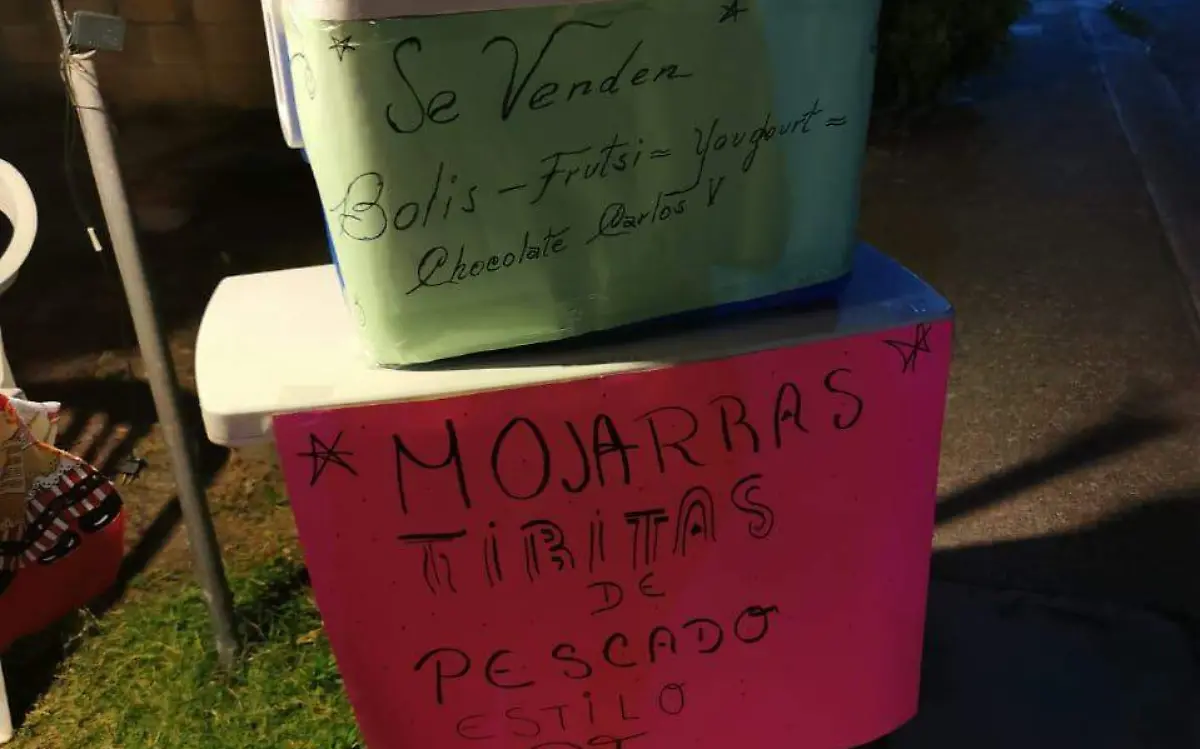 Se Venden
Bolis - Frutsi = Yougourt =
Chocolate Carlos V
MOJARRAS
TIRITAS
DE
PESCADO
ESTILO